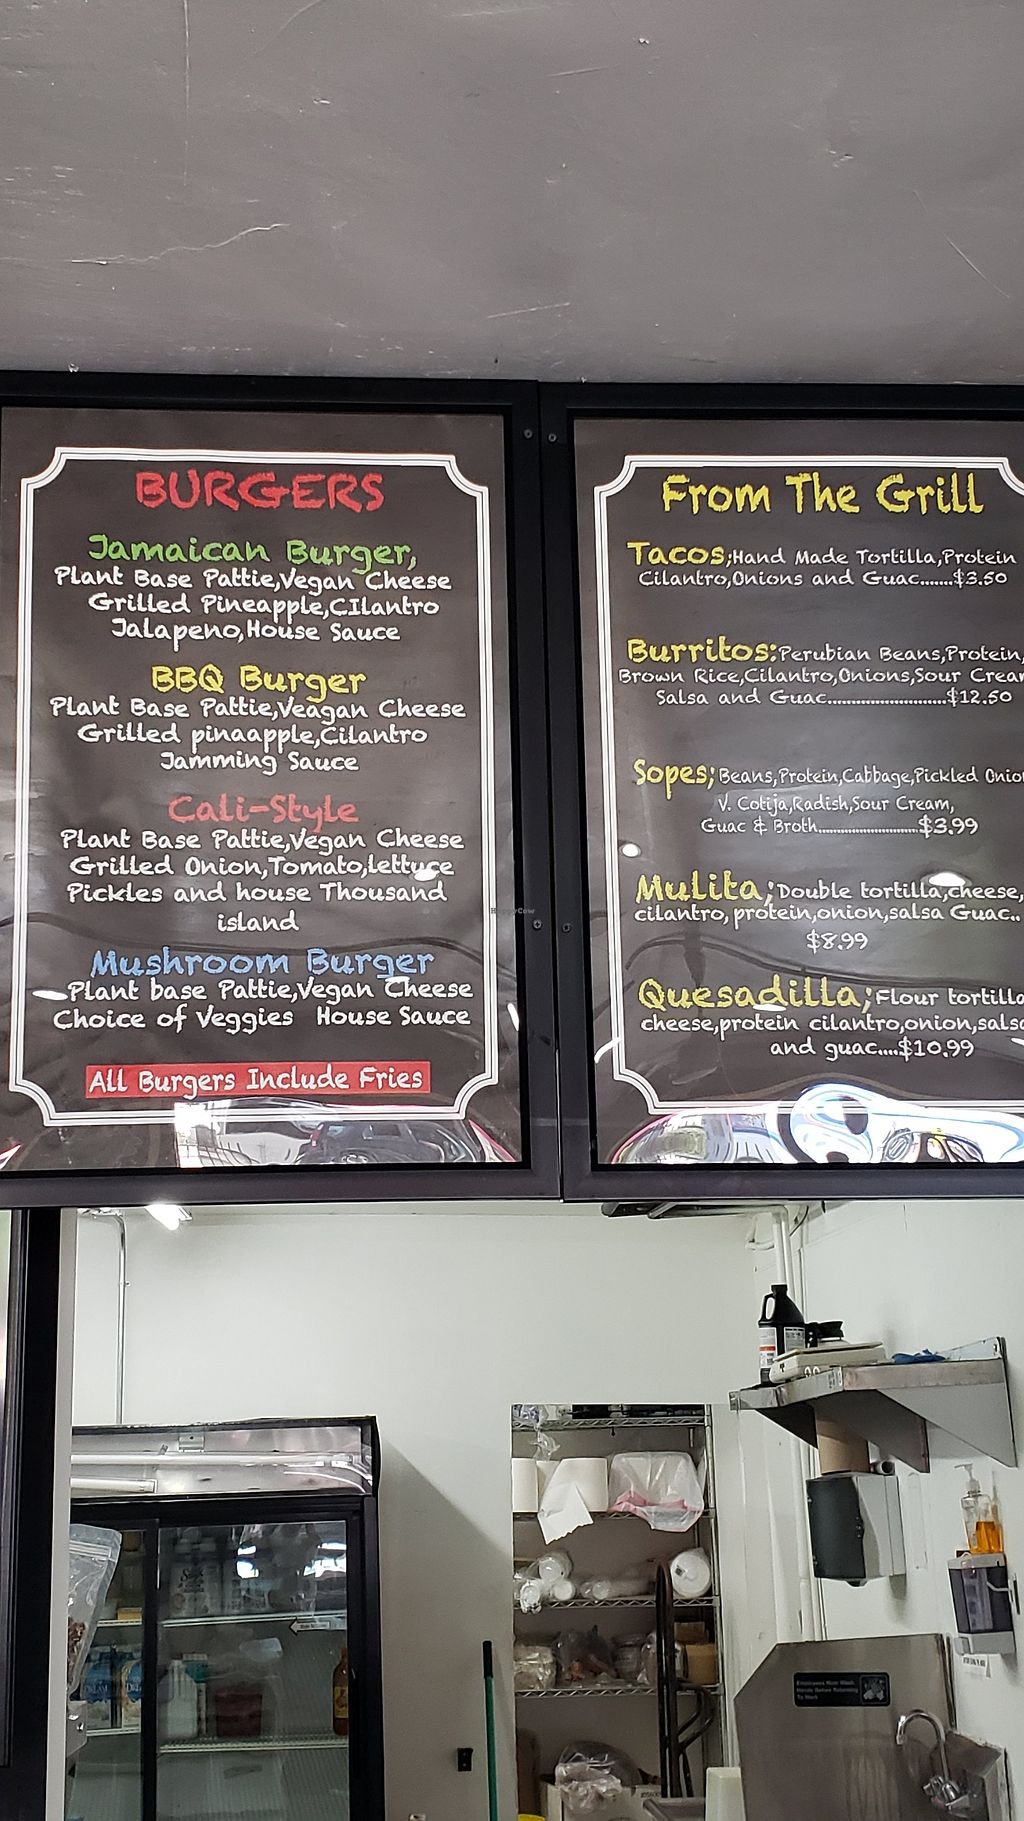 BURGERS
Jamaican Burger,
Plant Base Pattie,Vegan Cheese
Grilled Pineapple,CIlantro
Jalapeno,House Sauce
BBQ Burger
Plant Base Pattie,Veagan Cheese
Grilled pinaapple,Cilantro
Jamming Sauce
Cali-Style
Plant Base Pattie,Vegan Cheese
Grilled Onion,Tomato,lettuce
Pickles and house Thousand
island
Mushroom Burger
Plant base Pattie,Vegan Cheese
Choice of Veggies House Sauce
All Burgers Include Fries
From The Grill
Tacos;Hand Made Tortilla,Protein
Cilantro,Onions and Guac.......$3.50
Burritos:Perubian Beans,Protein,
Brown Rice,Cilantro,Onions,Sour Cream
Salsa and Guac..........................$12.50
Sopes;Beans,Protein,Cabbage,Pickled Onio
V. Cotija,Radish,Sour Cream,
Guac & Broth..........................$3.99
Mulita;Double tortilla,cheese,
cilantro,protein,onion,salsa Guac..
$8.99
Quesadilla;Flour tortilla
cheese,protein cilantro,onion,salsa
and guac....$10.99
HappyCow
Employees Must Wash
Hands Before Returning
To Work